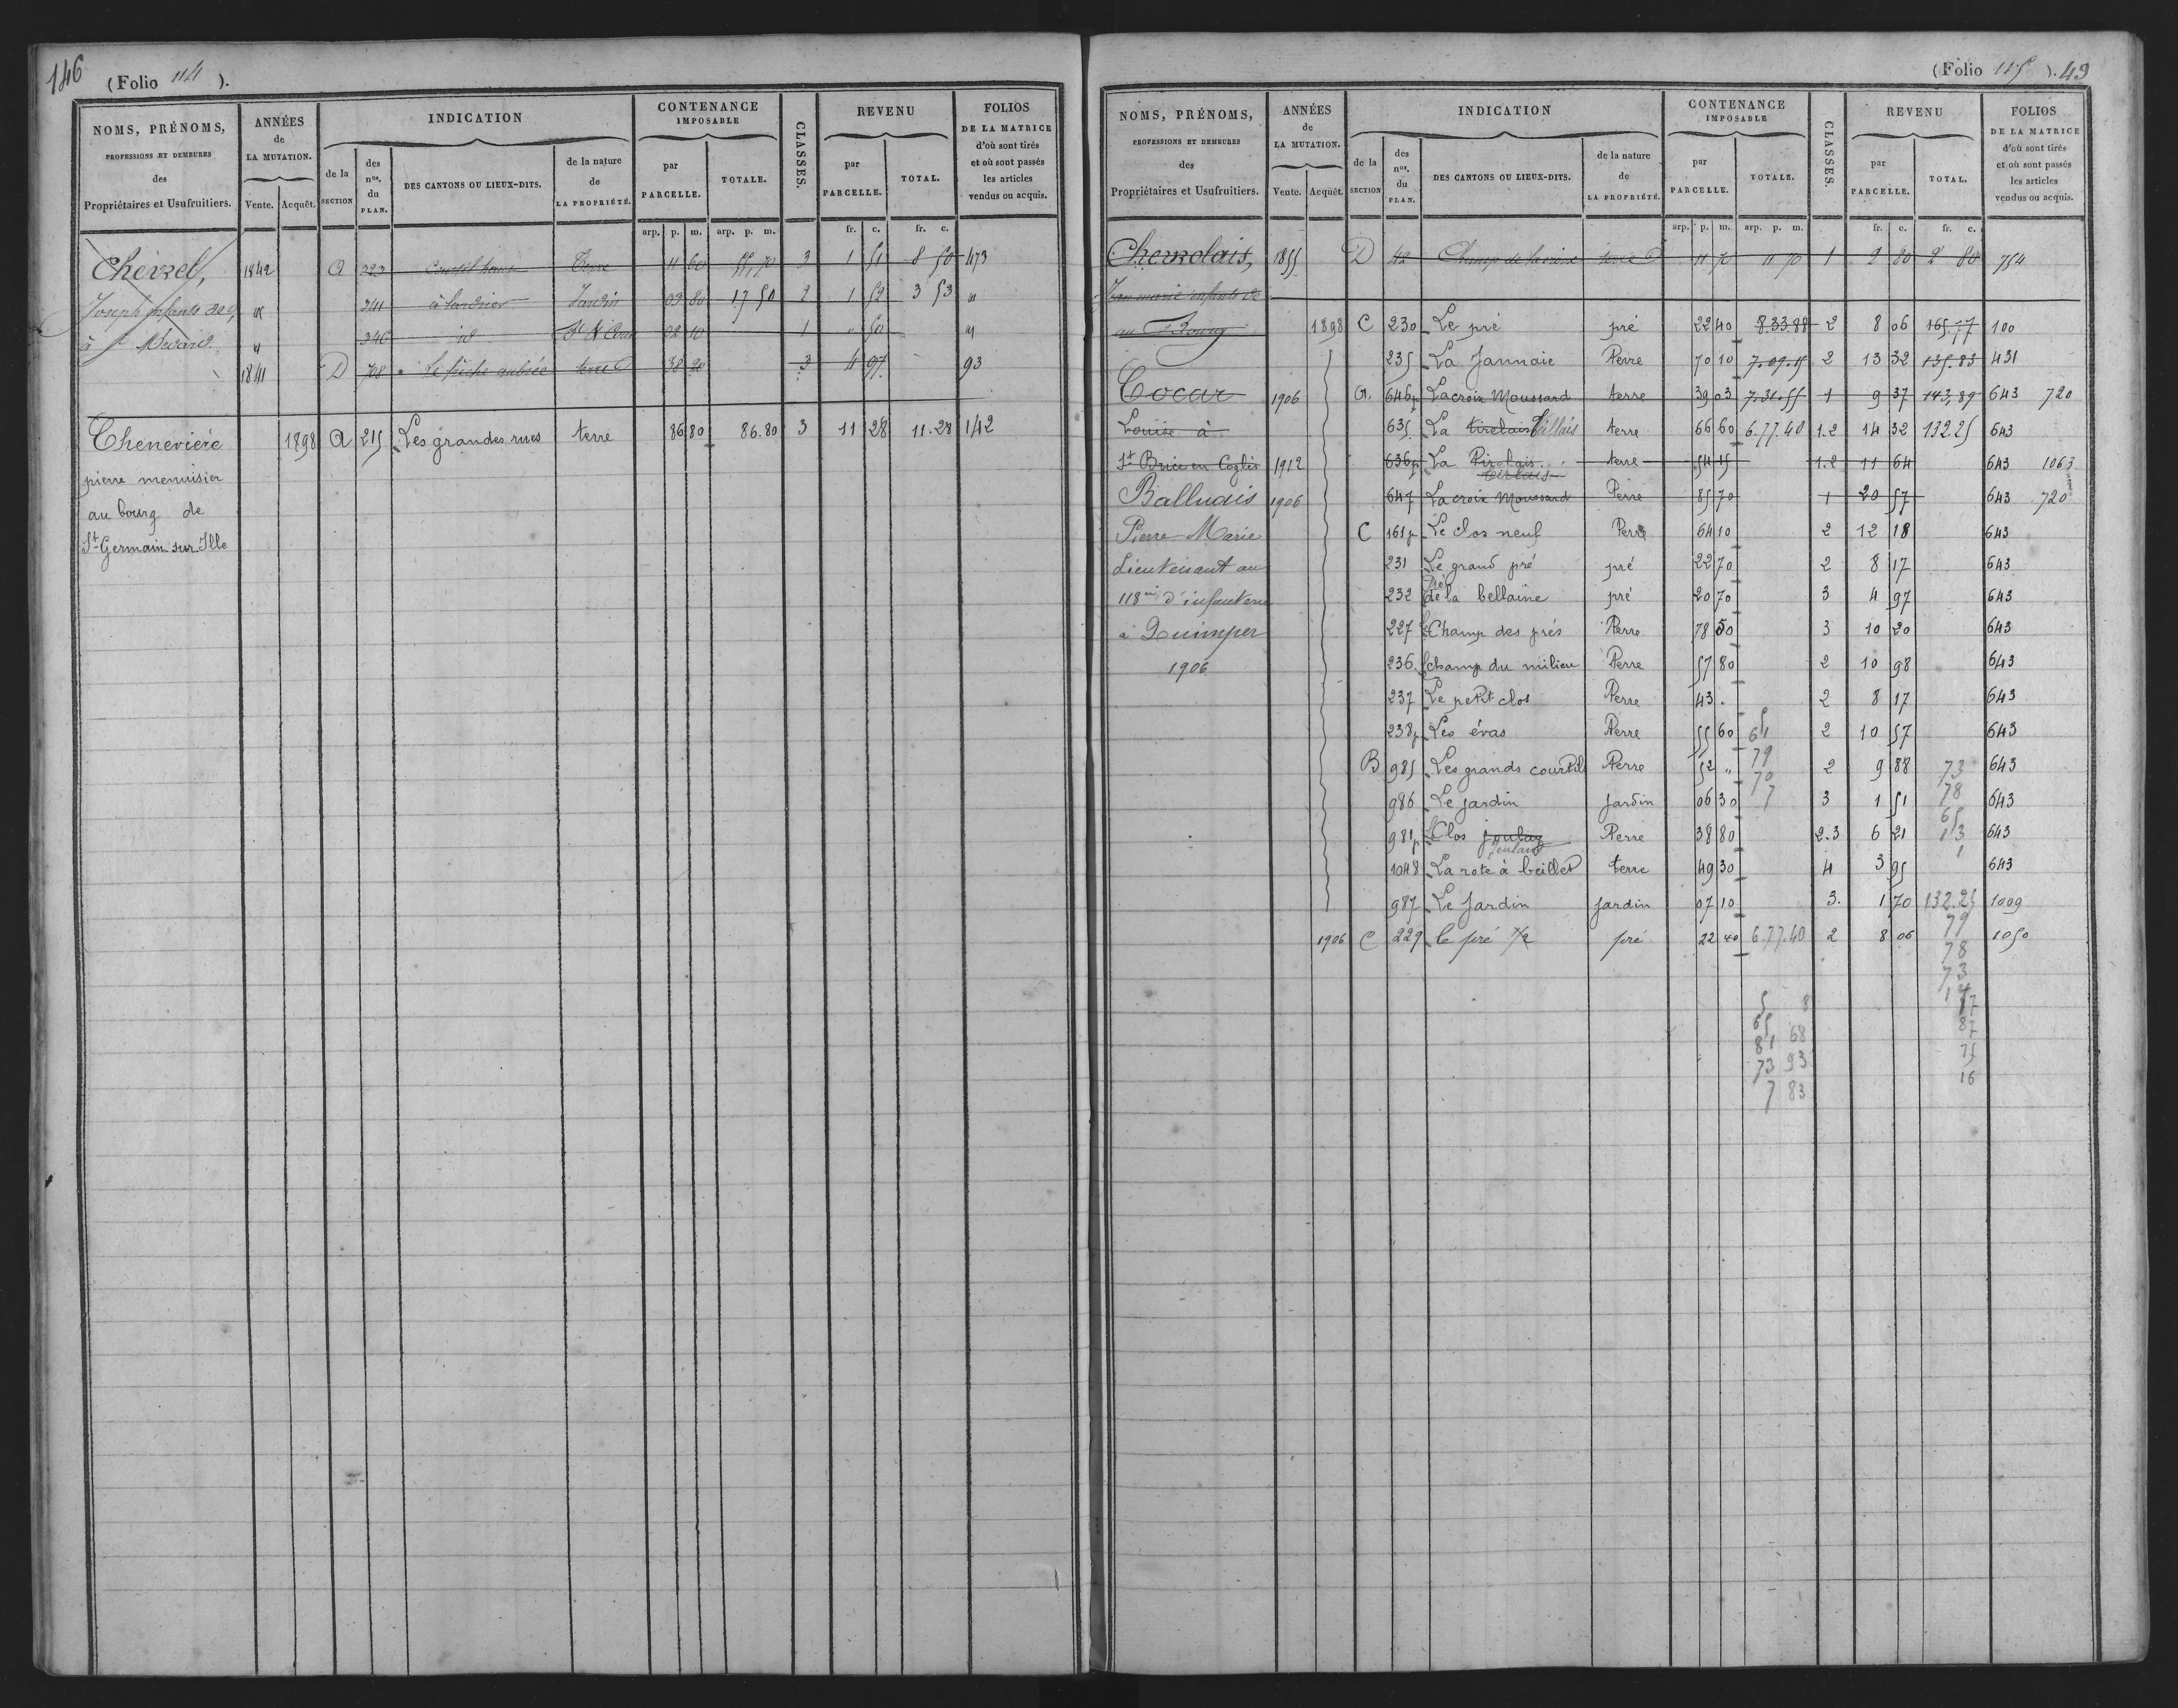 146
(Folio 114 ).
NOMS, PRÉNOMS,
PROFESSIONS ET DEMEURES
des
Propriétaires et Usufruitiers.
ANNÉES
de
LA MUTATION.
Vente. Acquêt.
INDICATION
de la SECTION
des nos. du PLAN.
DES CANTONS OU LIEUX-DITS.
de la nature de LA PROPRIÉTÉ.
CONTENANCE
IMPOSABLE
par PARCELLE. TOTALE.
CLASSES.
REVENU
par PARCELLE. TOTAL.
FOLIOS
DE LA MATRICE
d'où sont tirés
et où sont passés
les articles
vendus ou acquis.
arp. p. m. arp. p. m. fr. c. fr. c.
Chevrel, 1842 A 323 Courtil Terre 11 60 55,70 3 1 51 8 50 473
Joseph enfants de " 341 Jardin 03 80 17 50 2 1 52 3 53 "
à St Médard " 346 id 02 10 1 " 50 "
1841 D 708 terre 38 20 3 4 97 93
Chenevière 1898 A 215 Les grandes rues terre 86 80 86.80 3 11 28 11.28 142
pierre menuisier
au bourg de
St Germain sur Ille
(Folio 115 ). 49
NOMS, PRÉNOMS,
PROFESSIONS ET DEMEURES
des
Propriétaires et Usufruitiers.
ANNÉES
de
LA MUTATION.
Vente. Acquêt.
INDICATION
de la SECTION
des nos. du PLAN.
DES CANTONS OU LIEUX-DITS.
de la nature de LA PROPRIÉTÉ.
CONTENANCE
IMPOSABLE
par PARCELLE. TOTALE.
CLASSES.
REVENU
par PARCELLE. TOTAL.
FOLIOS
DE LA MATRICE
d'où sont tirés
et où sont passés
les articles
vendus ou acquis.
arp. p. m. arp. p. m. fr. c. fr. c.
1855 D 42 Champ de la croix terre 11 70 11 70 1 2 80 2 80 754
Jean marie enfants de
au Bourg 1898 C 230 Le pré pré 22 40 8.33.88 2 8 06 165.77 100
235 La Jannaie Terre 70 10 7.09.15 2 13 32 135.83 431
Cocar 1906 G. 646p Lacroix Moussard terre 39 03 7.31.55 1 9 37 143,89 643 720
Louise à 635 La tirelais terre 66 60 6.77.40 1.2 14 32 132.25 643
St Brice en Coglès 1912 636p La Tirelais terre 54 15 1.2 11 64 643 1063
Balluais 1906 647 Lacroix Moussard Terre 85 70 1 20 57 643 720
Pierre Marie C 161p Le clos neuf Terre 64 10 2 12 18 643
Lieutenant au 231 Le grand pré pré 22 70 2 8 17 643
118me d'infanterie 232 Pré de la bellaine pré 20 70 3 4 97 643
à Quimper 227 Le Champ des prés Terre 78 50 3 10 20 643
1906 236 Le champ du milieu Terre 57 80 2 10 98 643
237 Le petit clos Terre 43 . 2 8 17 643
238p Les évas Terre 55 60 2 10 57 643
B 985 Les grands courtils Terre 52 " 2 9 88 643
986 Le jardin jardin 06 30 3 1 51 643
981p Le Clos Terre 38 80 2.3 6 21 643
1048 La rote à beillet terre 49 30 4 3 95 643
987 Le Jardin jardin 07 10 3. 1 70 132.25 1009
1906 C 229 le pré 1/2 pré 22 40 6.77.40 2 8 06 1050
79
70
7
73
78
65
13
1
79
78
73
17
87
75
16
5 8
65 68
81 93
73 83
7